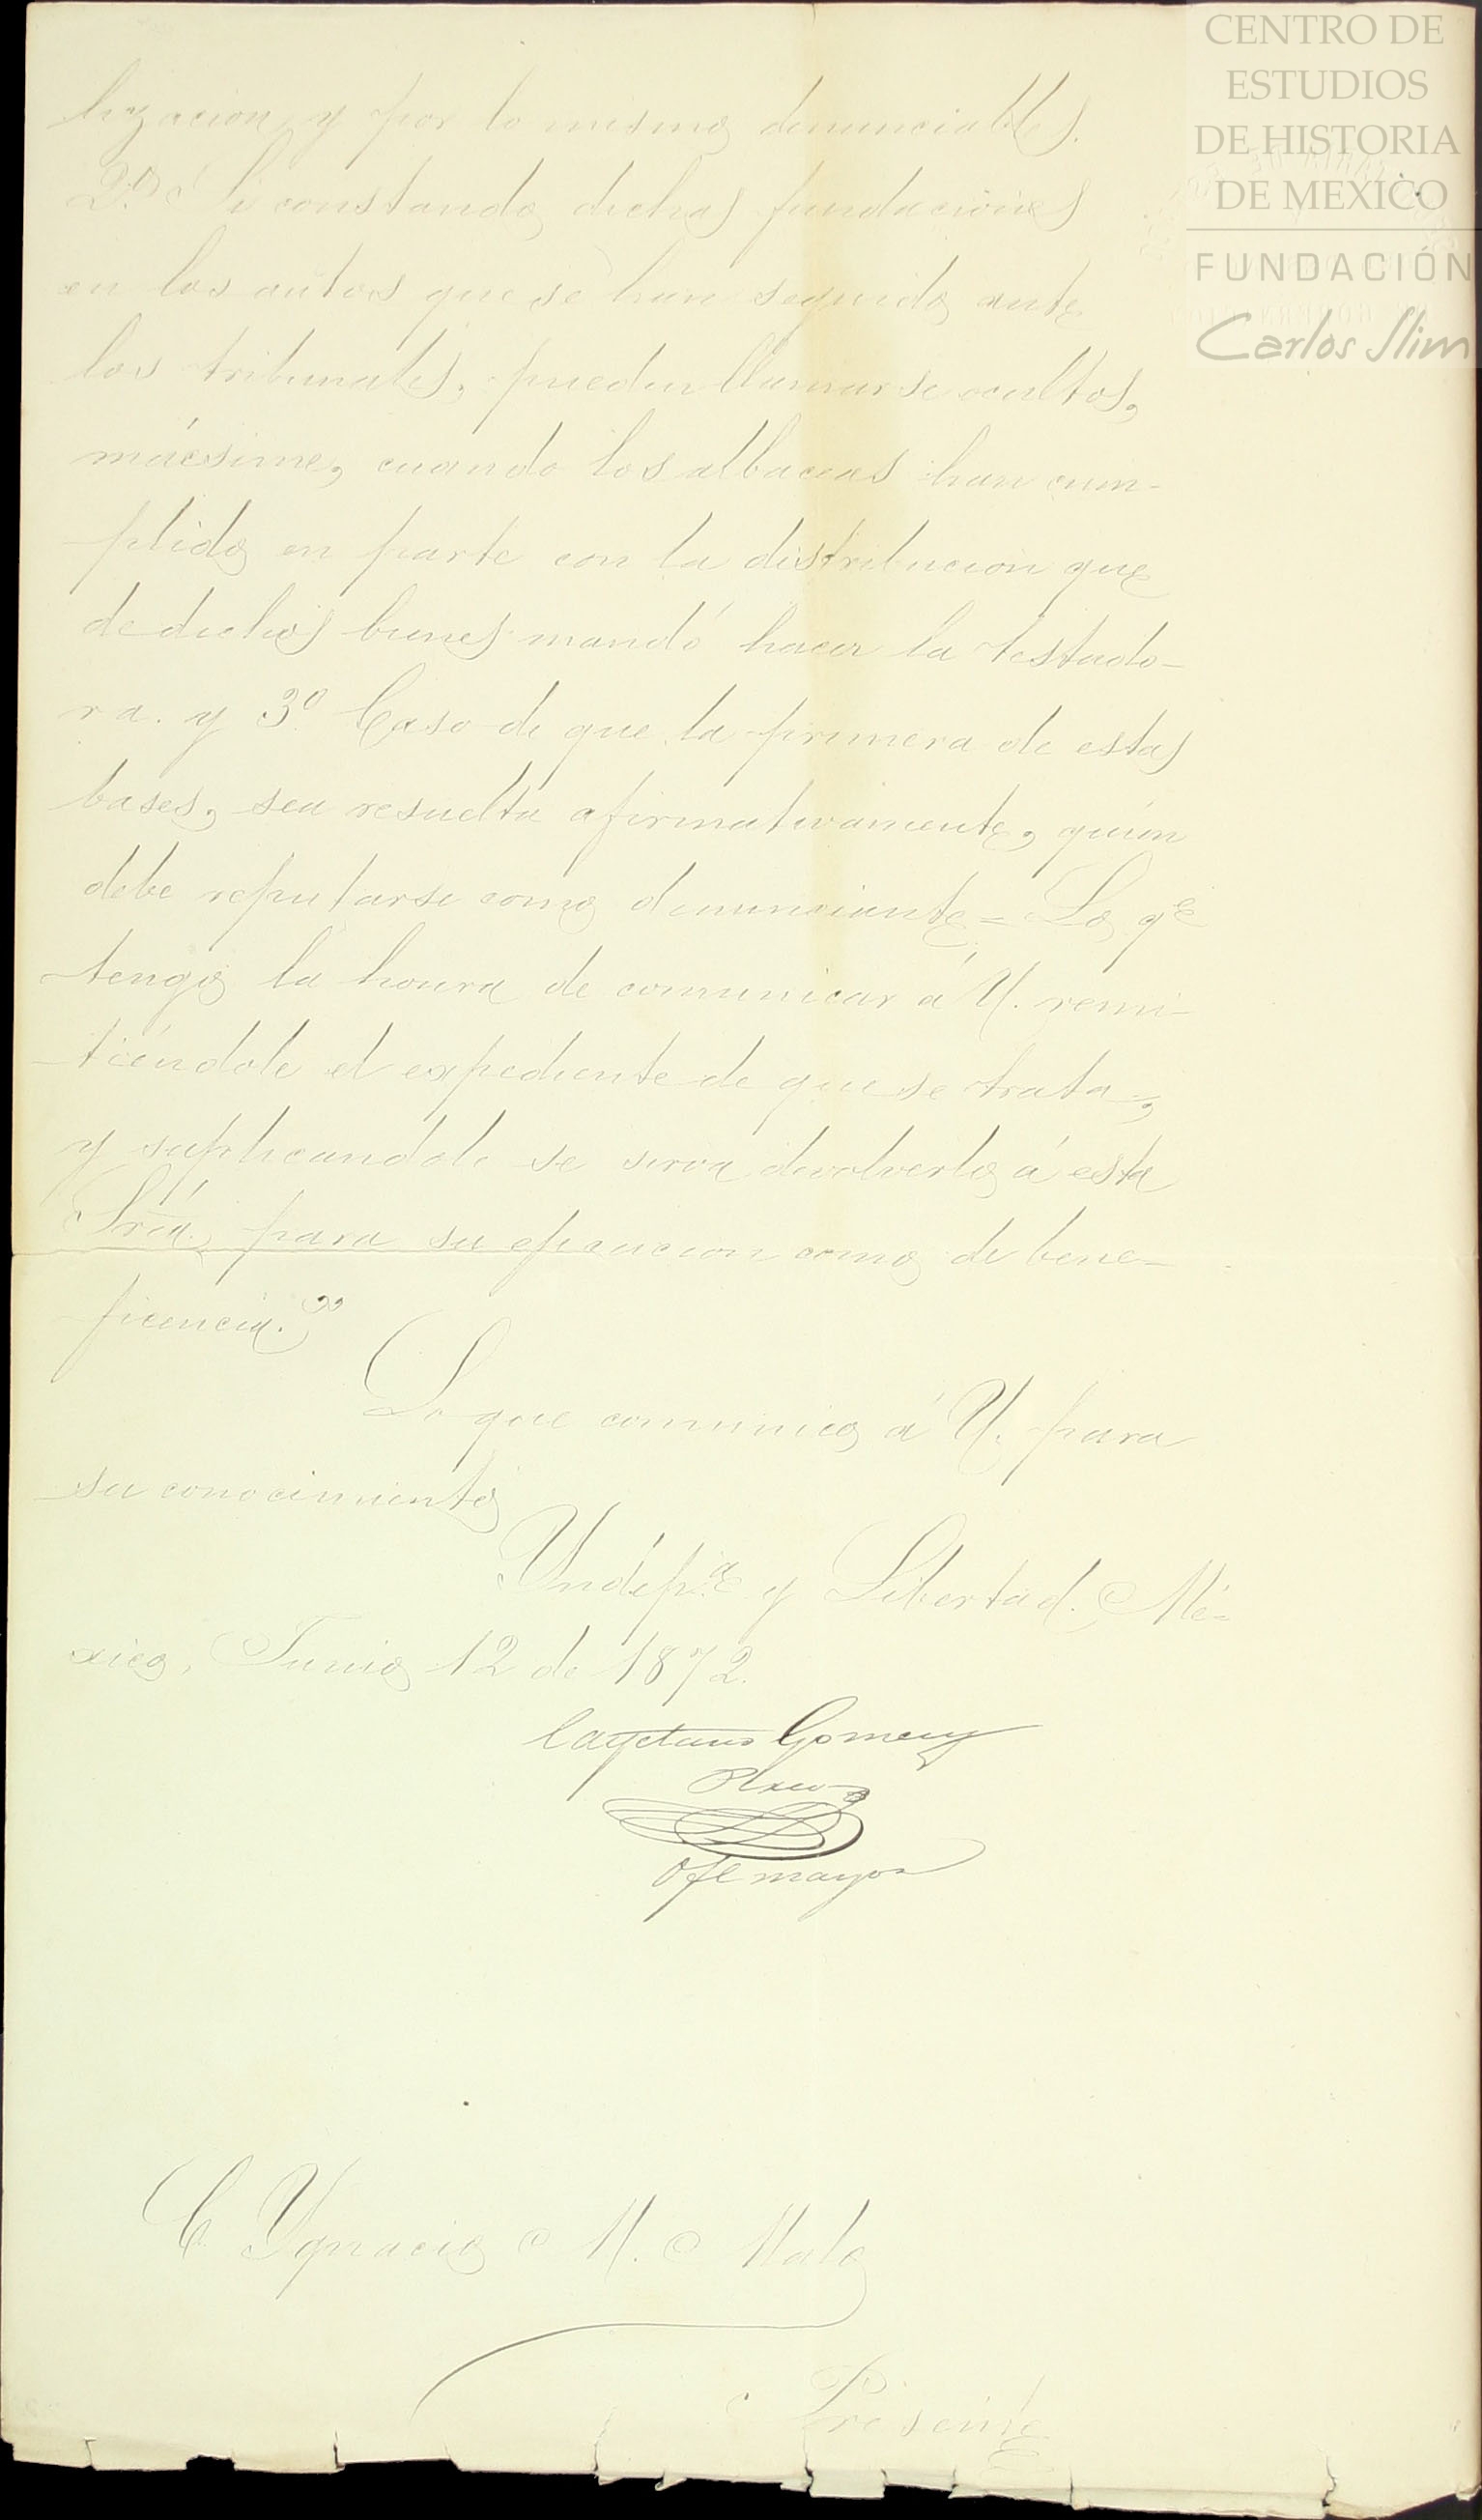 CENTRO DE
ESTUDIOS
DE HISTORIA
DE MEXICO
FUNDACIÓN
Carlos Slim
lizacion, y por lo mismo denunciables.
2.º Si constando dichas fundaciones
en los autos que se han seguido ante
los tribunales, pueden llamarse ocultos,
mácsime, cuando los albaceas han cum-
plido en parte con la distribucion que
de dichos bienes mandó hacer la testado-
ra. y 3º. Caso de que la primera de estas
bases, sea resuelta afirmativamente, quién
debe reputarse como denunciante = Lo qe
tengo la honra de comunicar á U. remi-
tiéndole el expediente de que se trata,
y suplicandole se sirva devolverlo á esta
Sría. para su ejecucion como de bene-
ficencia."
Lo que comunico á U. para
su conocimiento
Yndep.a y Libertad. Mé-
xico, Junio 12 de 1872.
Cayetano Gomez
Ofl mayor
C. Ygnacio M. Malo
Presente